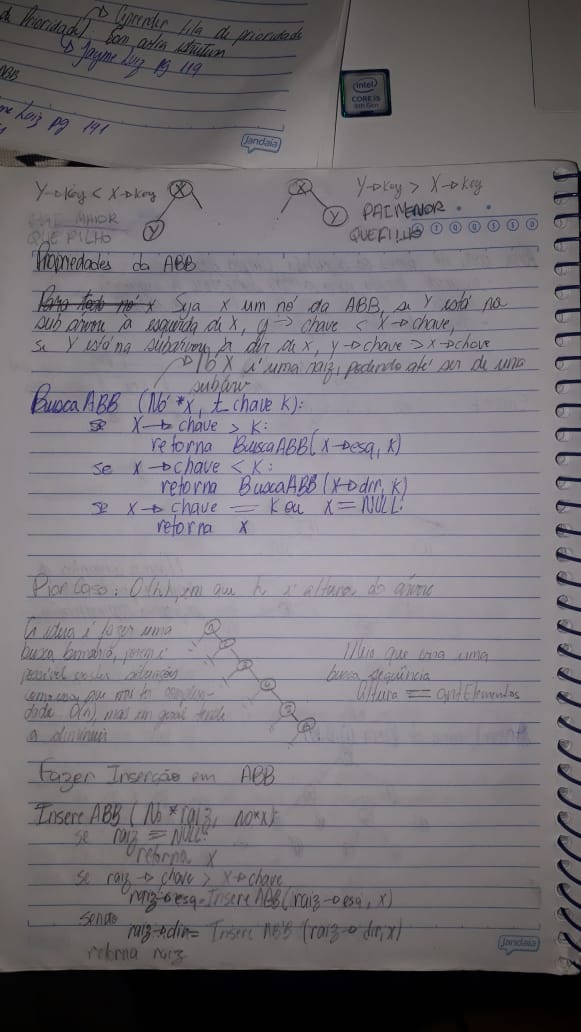 de Prioridade Aprender fila de prioridade
com outra estrutura
Jayme Luiz pg 119
Luiz pg 141
Jandaia
intel
CORE i5
8th Gen
Y→Key < X→Key
X
Y
MAIOR
QUE FILHO
X
Y
Y→Key > X→Key
PAI MENOR
QUE FILHO
D T Q Q S S D
Propriedades da ABB
Para todo nó x Seja X um nó da ABB, se Y está na
sub árvore à esquerda de X, y→chave < X→chave,
se Y está na subárvore à dir de X, y→chave > X→chave
Nó X é uma raiz, podendo até ser de uma
BuscaABB (Nó *x, t_chave K):
se X→chave > K:
retorna BuscaABB(X→esq, K)
se X→chave < K:
retorna BuscaABB(X→dir, K)
se X→chave == K ou X == NULL:
retorna X
Pior Caso: O(h) em que h é altura da árvore
A ideia é fazer uma
busca binária, porém é
possível
O(n), mas em geral tende
a diminuir
Meio que vira uma
busca sequência
Altura == qntElementos
Fazer Inserção em ABB
InsereABB (No *raiz, no*x):
se raiz == NULL:
retorna X
se raiz→chave > X→chave
raiz→esq = InsereABB(raiz→esq, X)
senão
raiz→dir = InsereABB (raiz→dir, x)
retorna raiz
Jandaia